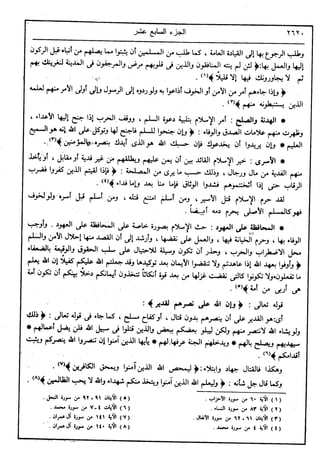 ٢٦٢٠ الجزء السابع عشر
وطلب الرجوع بها إلى القيادة العامة ، كما طلب من المسلمين أن يثبتوا مما يصلهم من أنباء قبل الركون
إليها والعمل بها: ﴿ لئن لم ينته المنافقون والذين فى قلوبهم مرض والمرجفون فى المدينة لنغرينك بهم
ثم لا يجاورونك فيها إلا قليلًا ﴾(١) .
﴿ وإذا جاءهم أمر من الأمن أو الخوف أذاعوا به ولو ردوه إلى الرسول وإلى أولى الأمر منهم لعلمه
الذين يستنبطونه منهم ﴾(٢).
* الهدنة والصلح : أمر الإسلام بتلبية دعوة السلم ، ووقف الحرب إذا جنح إليها الأعداء ،
وظهرت منهم علامات الصدق والوفاء : ﴿ وإن جنحوا للسلم فاجنح لها وتوكل على الله إنه هو السميع
العليم ● وإن يريدوا أن يخدعوك فإن حسبك الله هو الذى أيدك بنصره وبالمؤمنين ﴾(٣).
* الأسرى : خير الإسلام القائد بين أن يمن عليهم ويطلقهم من غير فدية أو مقابل ، أو يأخذ
منهم الفدية من مال ورجال ، وذلك حسب ما يرى من المصلحة : ﴿ فإذا لقيتم الذين كفروا فضرب
الرقاب حتى إذا أثخنتموهم فشدوا الوثاق فإما منا بعد وإما فداء ﴾(٤) .
لقد حرم الإسلام قتل الأسير، ومن أسلم امتنع قتله ، ومن أسلم قبل أسره ولو لخوف
فهو كالمسلم الأصلى يحرم دمه أيضاً .
* المحافظة على العهود : حث الإسلام بصورة خاصة على المحافظة على العهود . وأوجب
الوفاء بها ، وحرم الخيانة فيها ، والعمل على نقضها ، وأرشد إلى أن القصد منها إحلال الأمن والسلم
محل الاضطراب والحرب ، وحذر أن تكون وسيلة للاحتيال على سلب الحقوق والوقيعة بالضعفاء
﴿ وأوفوا بعهد الله إذا عاهدتم ولا تنقضوا الأيمان بعد توكيدها وقد جعلتم الله عليكم كفيلًا إن الله يعلم
ما تفعلون ● ولا تكونوا كالتى نقضت غزلها من بعد قوة أنكاثاً تتخذون أيمانكم دخلًا بينكم أن تكون أمة
هى أربى من أمة ﴾(٥) .
قوله تعالى : ﴿ وإن الله على نصرهم لقدير ﴾ :
أى : هو القدير على أن ينصرهم بدون قتال ، أو كفاح مسلح ، كما جاء فى قوله تعالى : ﴿ ذلك
ولو يشاء الله لانتصر منهم ولكن ليبلو بعضكم ببعض والذين قتلوا فى سبيل الله فلن يضل أعمالهم ●
سيهديهم ويصلح بالهم ● ويدخلهم الجنة عرفها لهم ● يأيها الذين آمنوا إن تنصروا الله ينصركم ويثبت
أقدامكم ﴾(٦) .
وهكذا فالقتال جهاد وابتلاء : ﴿ ليمحص الله الذين آمنوا ويمحق الكافرين ﴾(٧) .
وكما قال جل شأنه : ﴿ وليعلم الله الذين آمنوا ويتخذ منكم شهداء والله لا يحب الظالمين ﴾(٨) .
(١) الآية ٦٠ من سورة الأحزاب . (٥) الآيتان ٩١ ، ٩٢ من سورة النحل .
(٢) الآية ٨٣ من سورة النساء . (٦) الآيات ٤ - ٧ من سورة محمد .
(٣) الآيتان ٦١ ، ٦٢ من سورة الأنفال . (٧) الآية ١٤١ من سورة آل عمران .
(٤) الآية ٤ من سورة محمد . (٨) الآية ١٤٠ من سورة آل عمران .